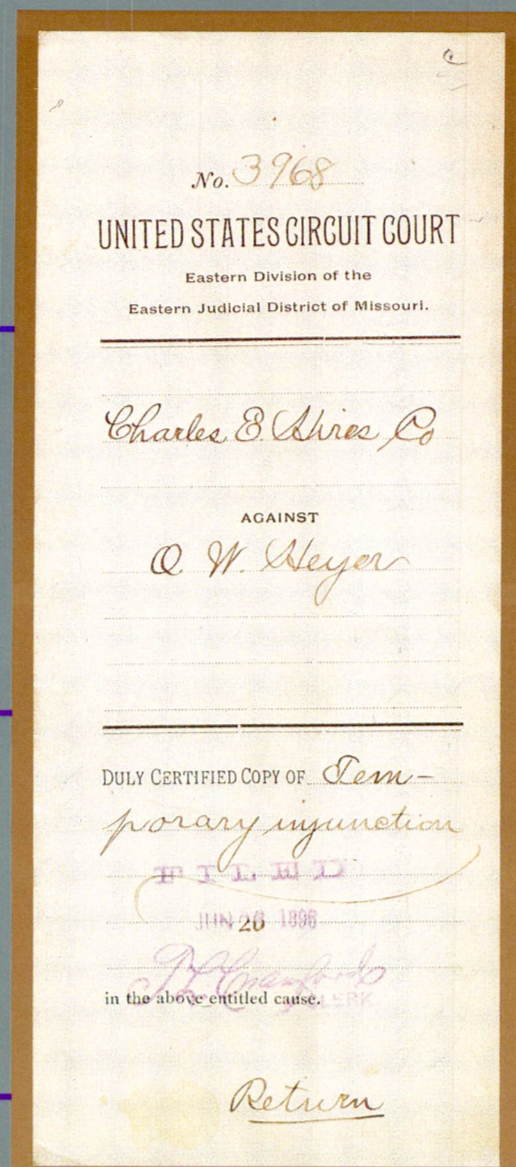 No. 3968
UNITED STATES CIRCUIT COURT
Eastern Division of the
Eastern Judicial District of Missouri.
Charles E. Hires Co
AGAINST
O. W. Heyer
DULY CERTIFIED COPY OF Tem-
porary injunction
FILED
JUN 26 1896
CLERK
in the above entitled cause.
Return